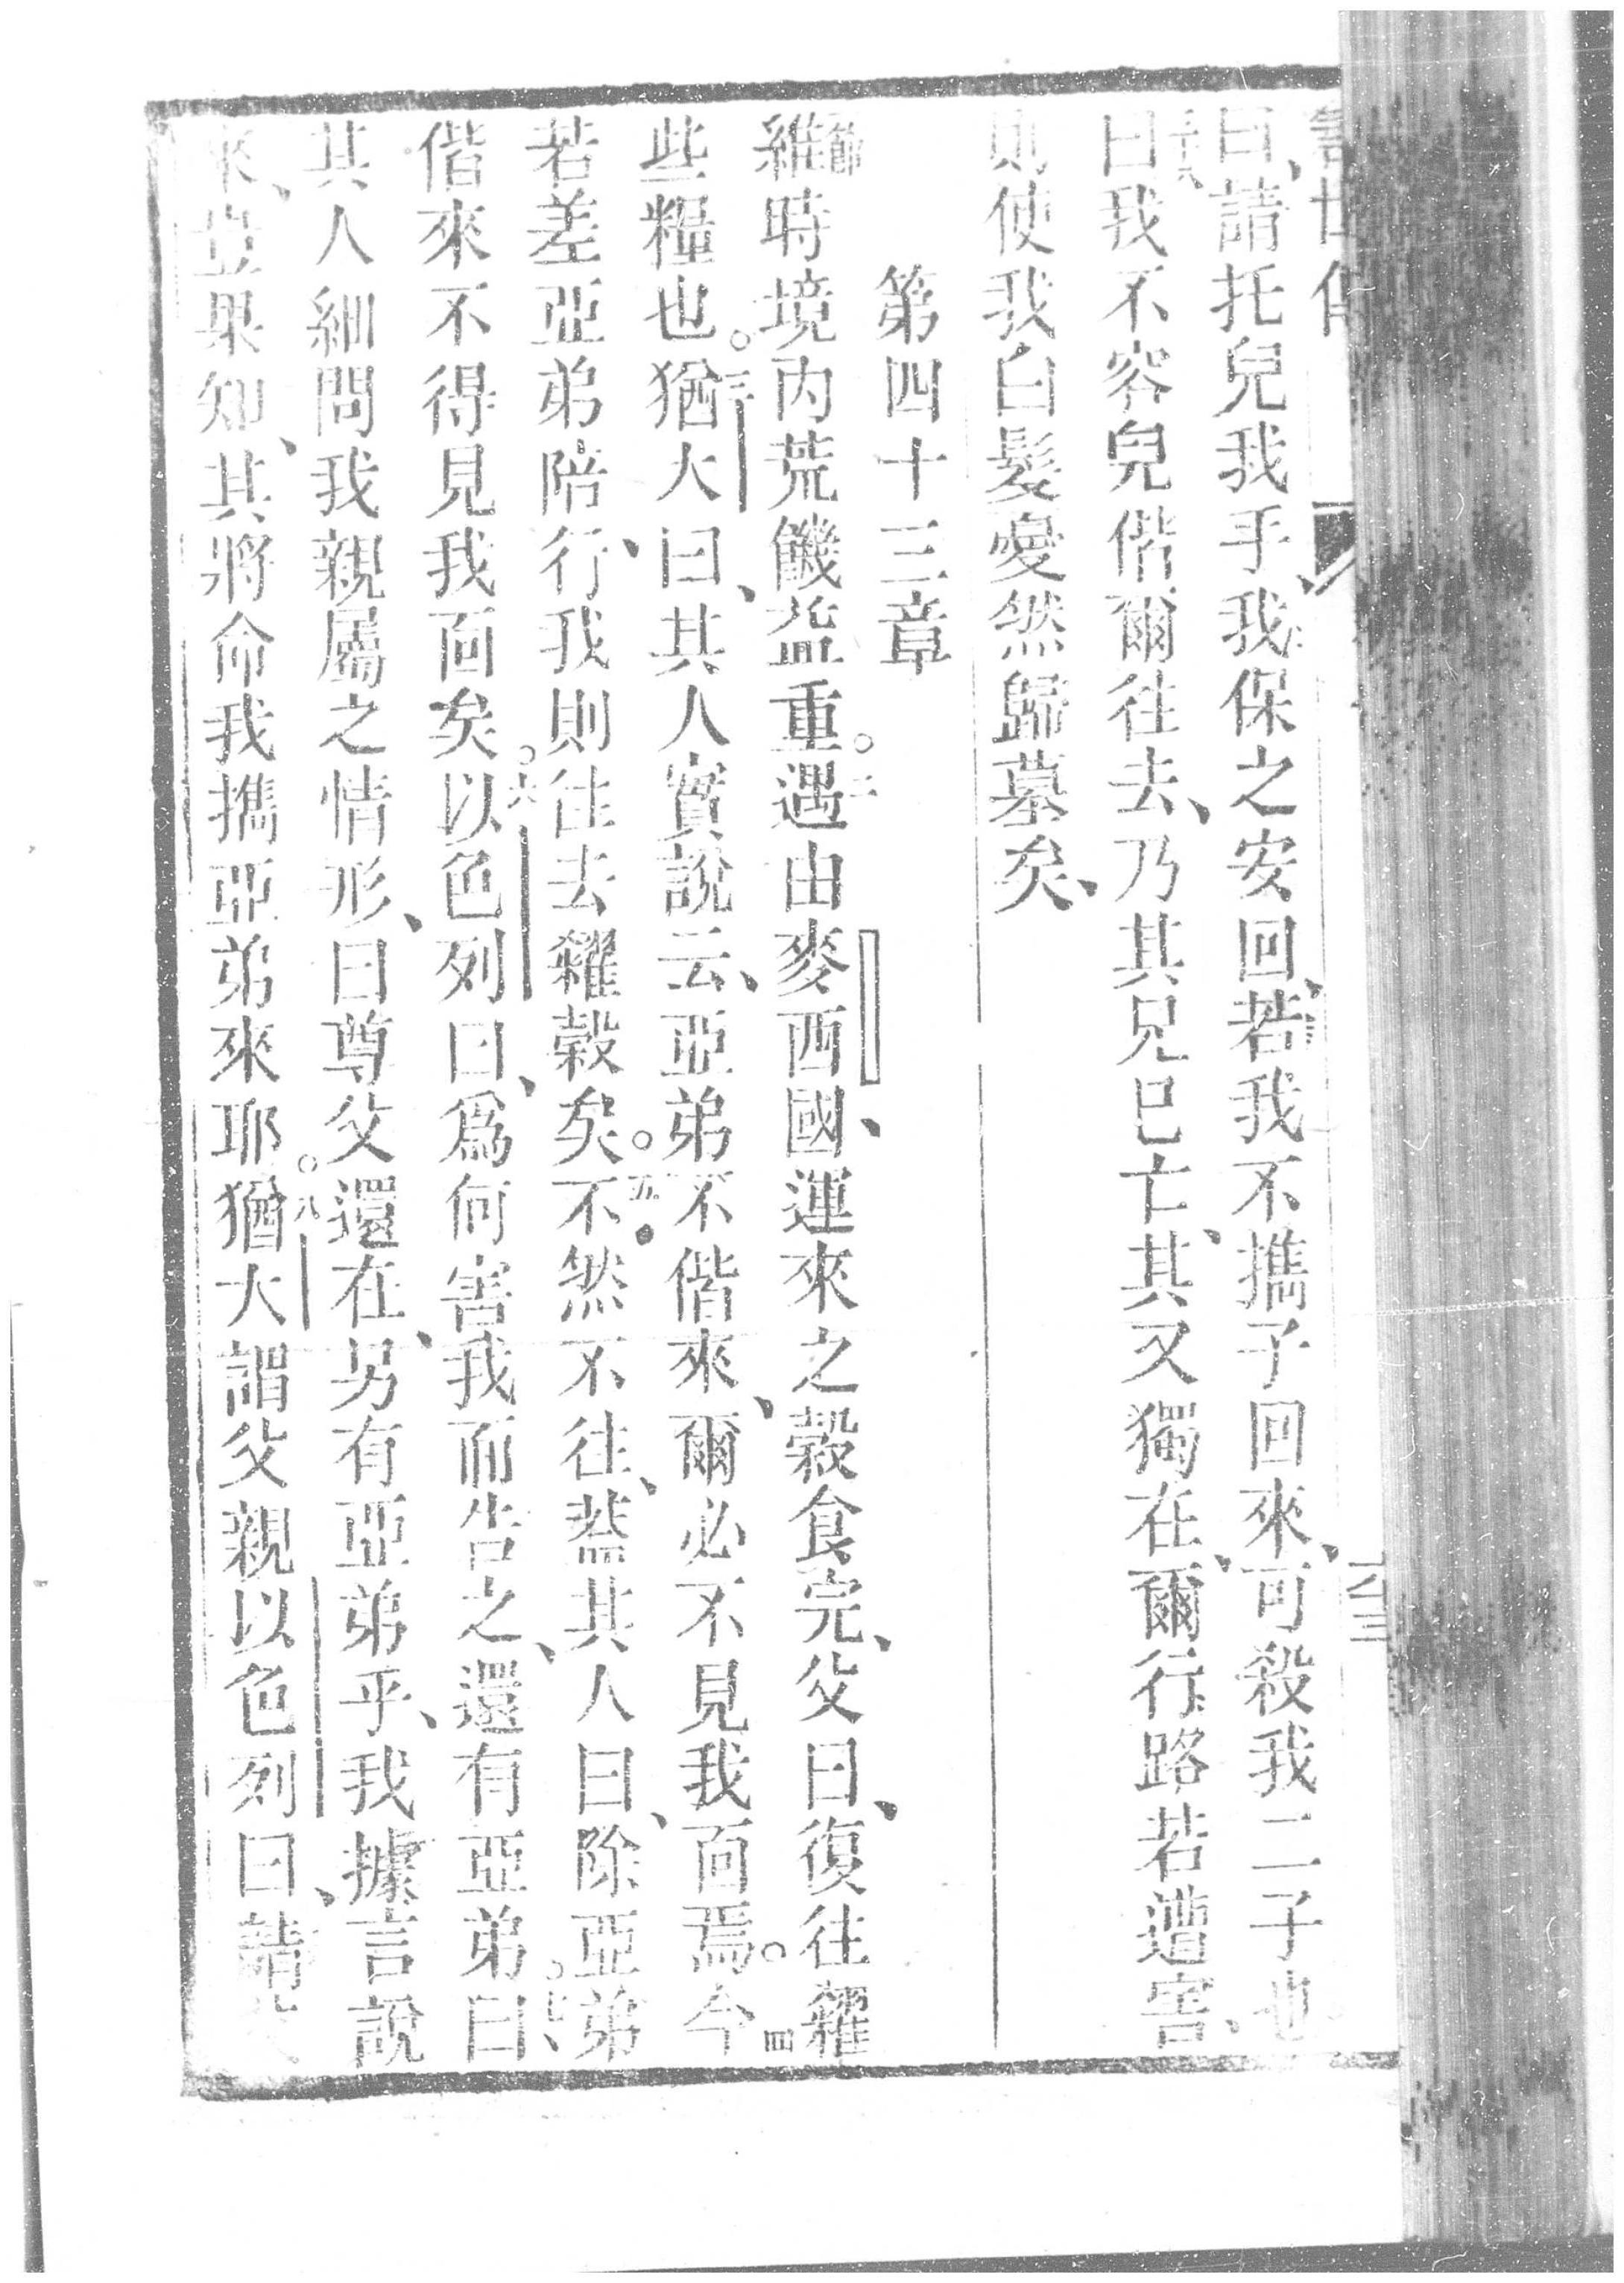 曰、請托兒我手、我保之安回、若我不擕子回來、可殺我二子也
曰我不容兒偕爾往去、乃其兄已亡、其又獨在、爾行路若遭害、
則使我白髮憂然歸墓矣、
第四十三章
維時境內荒饑益重。二遇由麥西國、運來之穀食完、父曰、復往糴
些糧也。三猶大曰、其人實說云、亞弟不偕來、爾必不見我面焉。四今
若差亞弟陪行、我則往去糴穀矣。五不然不往、蓋其人曰、除亞弟
偕來不得見我面矣。六以色列曰、爲何害我而告之、還有亞弟。七曰、
其人細問我親屬之情形、曰尊父還在、另有亞弟乎、我據言說
來、豈果知、其將命我擕亞弟來耶。八猶大謂父親以色列曰、請
六三